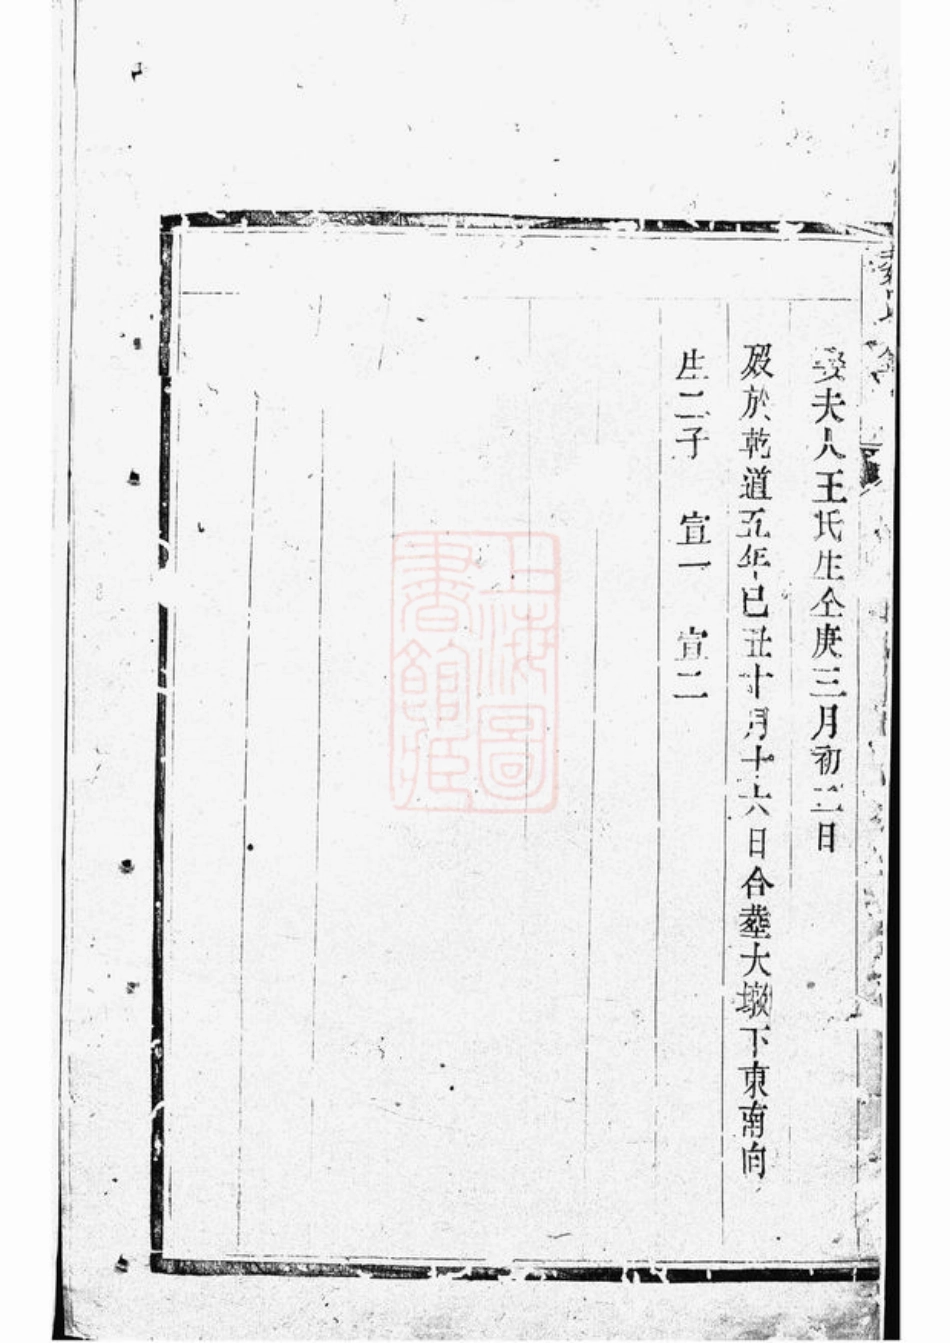 娶夫人王氏生仝庚三月初二日
歿於乾道五年已丑十月十六日合塟大墩下東南向
生二子　宣一　宣二
上海圖
書館藏